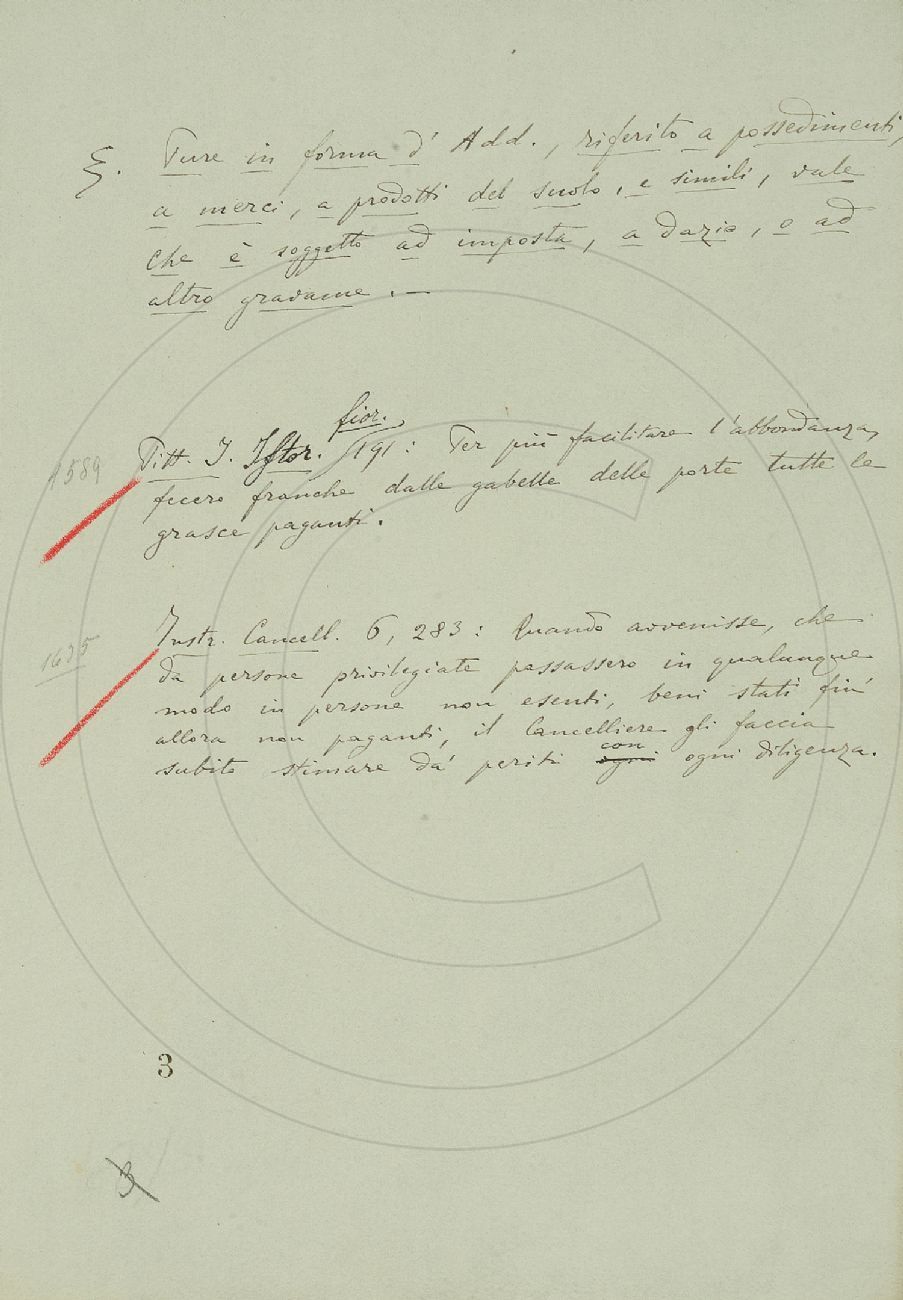 §. Pure in forma d' Add., riferito a possedimenti,
a merci, a prodotti del suolo, e simili, vale
Che è soggetto ad imposta, a dazio, o ad
altro gravame. —
fior.
1589 Pitt. J. Istor. 191: Per più facilitare l'abbondanza,
fecero franche dalle gabelle delle porte tutte le
grasce paganti.
1635 Instr. Cancell. 6, 283: Quando avvenisse, che
da persone privilegiate passassero in qualunque
modo in persone non esenti, beni stati fin'
allora non paganti, il Cancelliere gli faccia
con
subito stimare da' periti ogni ogni diligenza.
3
3